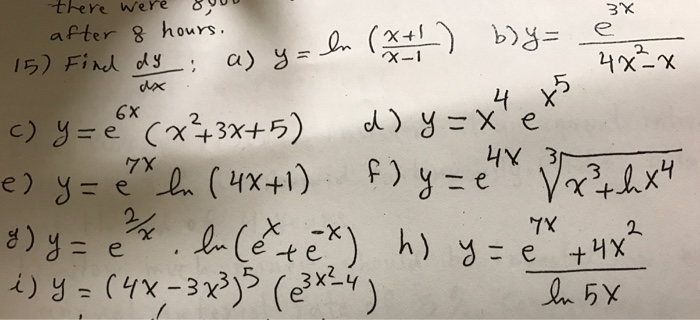 there were
after 8 hours.
15) Find dy/dx : a) y = ln (x+1/x-1) b) y = e^3x / 4x^2-x
c) y = e^6x (x^2+3x+5) d) y = x^4 e^x^5
e) y = e^7x ln (4x+1) f) y = e^4x ∛x^3+lnx^4
g) y = e^2/x . ln (e^x+e^-x) h) y = e^7x+4x^2 / ln 5x
i) y = (4x-3x^3)^5 (e^3x^2-4)